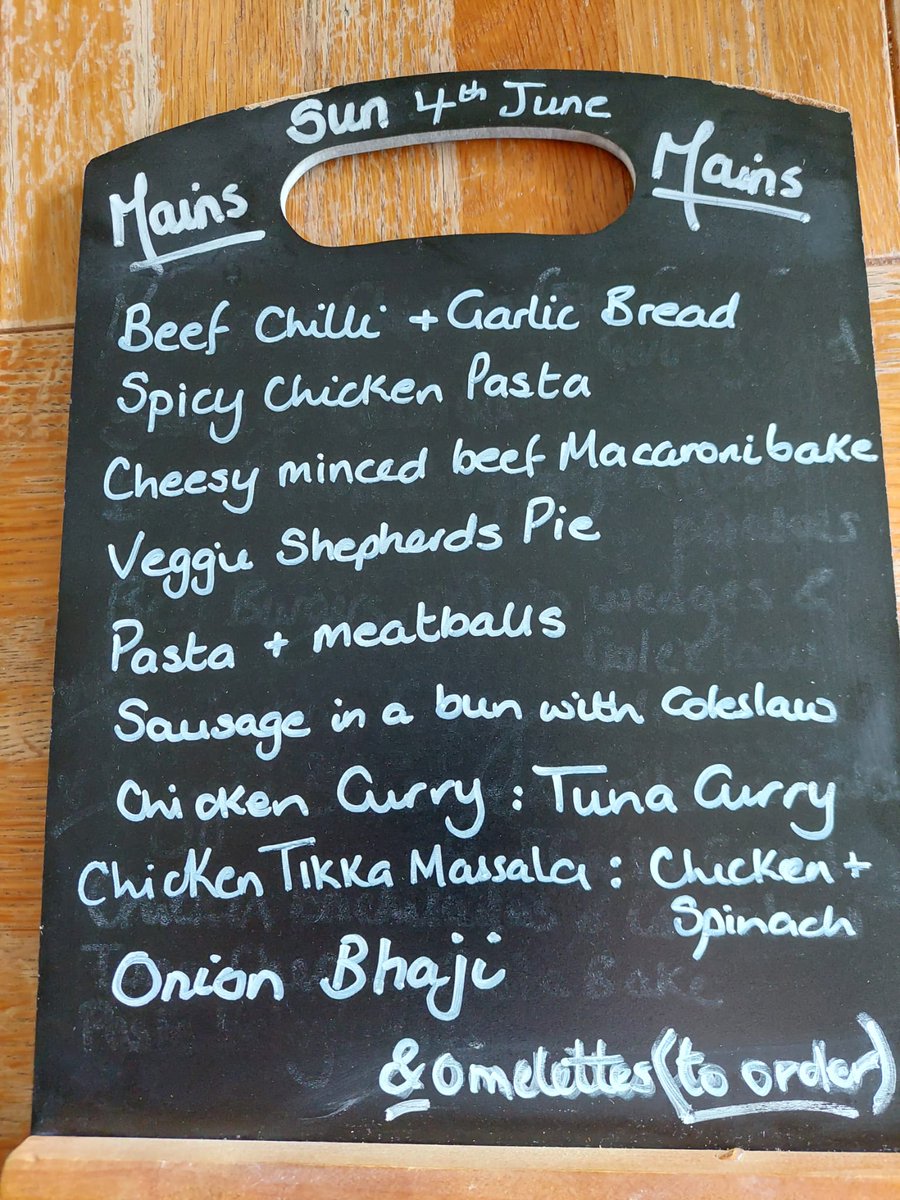 Sun 4th June
Mains Mains
Beef Chilli + Garlic Bread
Spicy Chicken Pasta
Cheesy minced beef Macaroni bake
Veggie Shepherds Pie
Pasta + meatballs
Sausage in a bun with Coleslaw
Chicken Curry : Tuna Curry
Chicken Tikka Massala : Chicken +
Spinach
Onion Bhaji
& omelettes (to order)